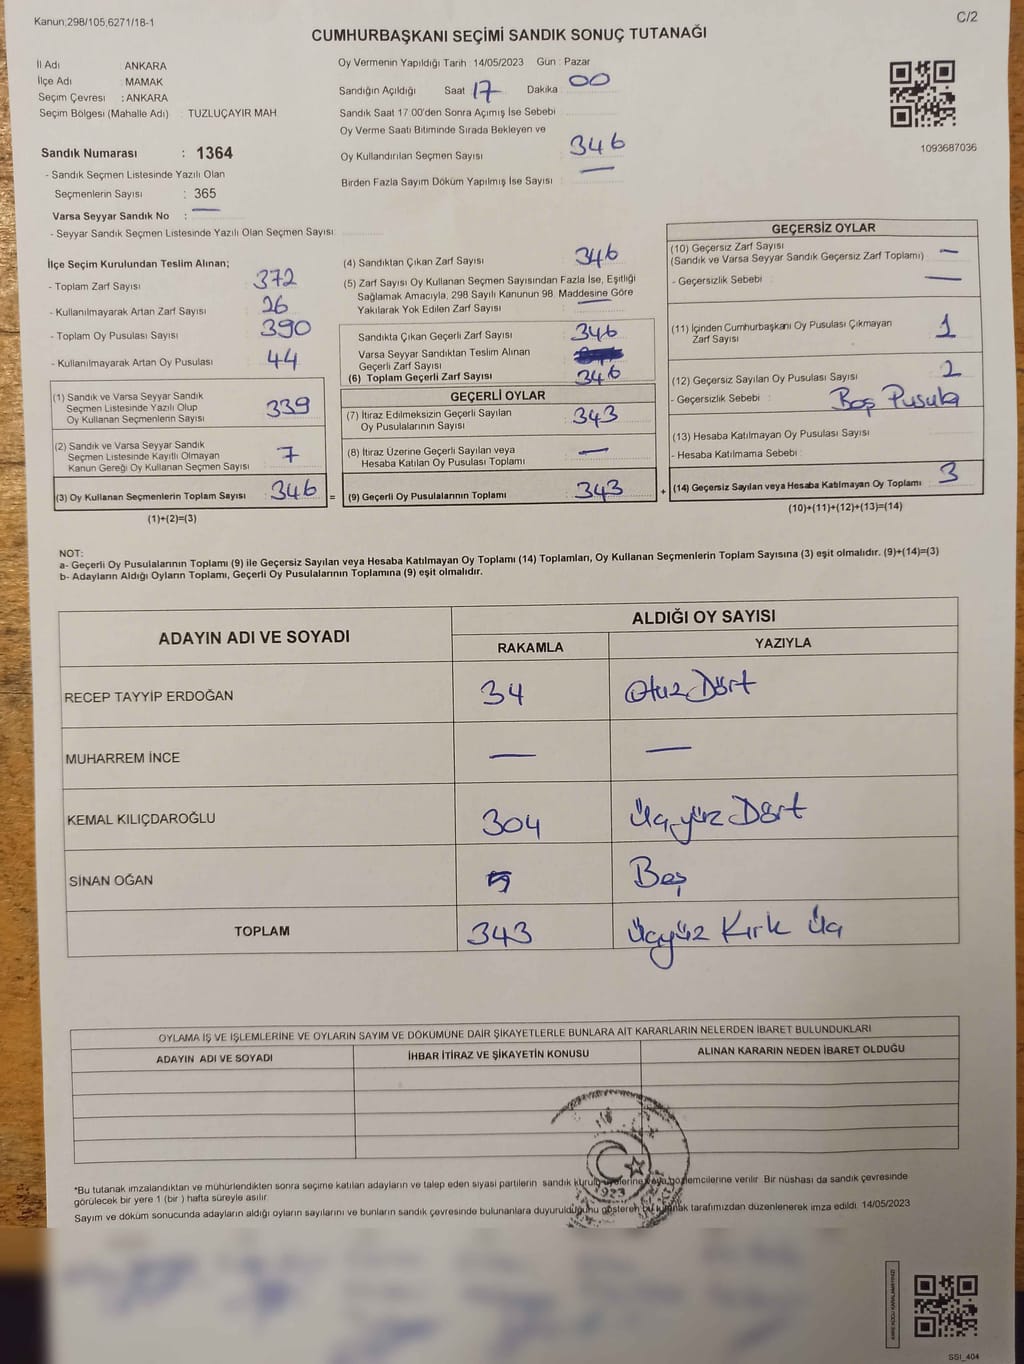 Kanun;298/105,6271/18-1
C/2
CUMHURBAŞKANI SEÇİMİ SANDIK SONUÇ TUTANAĞI
İl Adı : ANKARA
İlçe Adı : MAMAK
Seçim Çevresi : ANKARA
Seçim Bölgesi (Mahalle Adı) : TUZLUÇAYIR MAH
Sandık Numarası : 1364
- Sandık Seçmen Listesinde Yazılı Olan
Seçmenlerin Sayısı : 365
Varsa Seyyar Sandık No : —
- Seyyar Sandık Seçmen Listesinde Yazılı Olan Seçmen Sayısı
Oy Vermenin Yapıldığı Tarih : 14/05/2023 Gün : Pazar
Sandığın Açıldığı Saat 17 Dakika 00
Sandık Saat 17 00'den Sonra Açımış İse Sebebi
Oy Verme Saati Bitiminde Sırada Bekleyen ve
Oy Kullandırılan Seçmen Sayısı 346
Birden Fazla Sayım Döküm Yapılmış İse Sayısı —
1093687036
İlçe Seçim Kurulundan Teslim Alınan;
- Toplam Zarf Sayısı 372
- Kullanılmayarak Artan Zarf Sayısı 26
- Toplam Oy Pusulası Sayısı 390
- Kullanılmayarak Artan Oy Pusulası 44
(1) Sandık ve Varsa Seyyar Sandık
Seçmen Listesinde Yazılı Olup
Oy Kullanan Seçmenlerin Sayısı 339
(2) Sandık ve Varsa Seyyar Sandık
Seçmen Listesinde Kayıtlı Olmayan
Kanun Gereği Oy Kullanan Seçmen Sayısı 7
(3) Oy Kullanan Seçmenlerin Toplam Sayısı 346 =
(1)+(2)=(3)
(4) Sandıktan Çıkan Zarf Sayısı 346
(5) Zarf Sayısı Oy Kullanan Seçmen Sayısından Fazla İse, Eşitliği
Sağlamak Amacıyla, 298 Sayılı Kanunun 98. Maddesine Göre
Yakılarak Yok Edilen Zarf Sayısı —
Sandıkta Çıkan Geçerli Zarf Sayısı 346
Varsa Seyyar Sandıktan Teslim Alınan
Geçerli Zarf Sayısı
(6) Toplam Geçerli Zarf Sayısı 346
GEÇERLİ OYLAR
(7) İtiraz Edilmeksizin Geçerli Sayılan
Oy Pusulalarının Sayısı 343
(8) İtiraz Üzerine Geçerli Sayılan veya
Hesaba Katılan Oy Pusulası Toplamı —
(9) Geçerli Oy Pusulalarının Toplamı 343 +
GEÇERSİZ OYLAR
(10) Geçersiz Zarf Sayısı —
(Sandık ve Varsa Seyyar Sandık Geçersiz Zarf Toplamı)
- Geçersizlik Sebebi —
(11) İçinden Cumhurbaşkanı Oy Pusulası Çıkmayan
Zarf Sayısı 1
(12) Geçersiz Sayılan Oy Pusulası Sayısı 2
- Geçersizlik Sebebi : Boş Pusula
(13) Hesaba Katılmayan Oy Pusulası Sayısı
- Hesaba Katılmama Sebebi
(14) Geçersiz Sayılan veya Hesaba Katılmayan Oy Toplamı 3
(10)+(11)+(12)+(13)=(14)
NOT:
a- Geçerli Oy Pusulalarının Toplamı (9) ile Geçersiz Sayılan veya Hesaba Katılmayan Oy Toplamı (14) Toplamları, Oy Kullanan Seçmenlerin Toplam Sayısına (3) eşit olmalıdır. (9)+(14)=(3)
b- Adayların Aldığı Oyların Toplamı, Geçerli Oy Pusulalarının Toplamına (9) eşit olmalıdır.
ADAYIN ADI VE SOYADI
ALDIĞI OY SAYISI
RAKAMLA YAZIYLA
RECEP TAYYİP ERDOĞAN 34 Otuz Dört
MUHARREM İNCE — —
KEMAL KILIÇDAROĞLU 304 Üçyüz Dört
SİNAN OĞAN 5 Beş
TOPLAM 343 Üçyüz Kırk Üç
OYLAMA İŞ VE İŞLEMLERİNE VE OYLARIN SAYIM VE DÖKÜMÜNE DAİR ŞİKAYETLERLE BUNLARA AİT KARARLARIN NELERDEN İBARET BULUNDUKLARI
ADAYIN ADI VE SOYADI İHBAR İTİRAZ VE ŞİKAYETİN KONUSU ALINAN KARARIN NEDEN İBARET OLDUĞU
*Bu tutanak imzalandıktan ve mühürlendikten sonra seçime katılan adayların ve talep eden siyasi partilerin sandık kurulu üyelerine veya gözlemcilerine verilir Bir nüshası da sandık çevresinde
görülecek bir yere 1 (bir ) hafta süreyle asılır
Sayım ve döküm sonucunda adayların aldığı oyların sayılarını ve bunların sandık çevresinde bulunanlara duyurulduğunu gösteren bu tutanak tarafımızdan düzenlenerek imza edildi. 14/05/2023
SSI_404